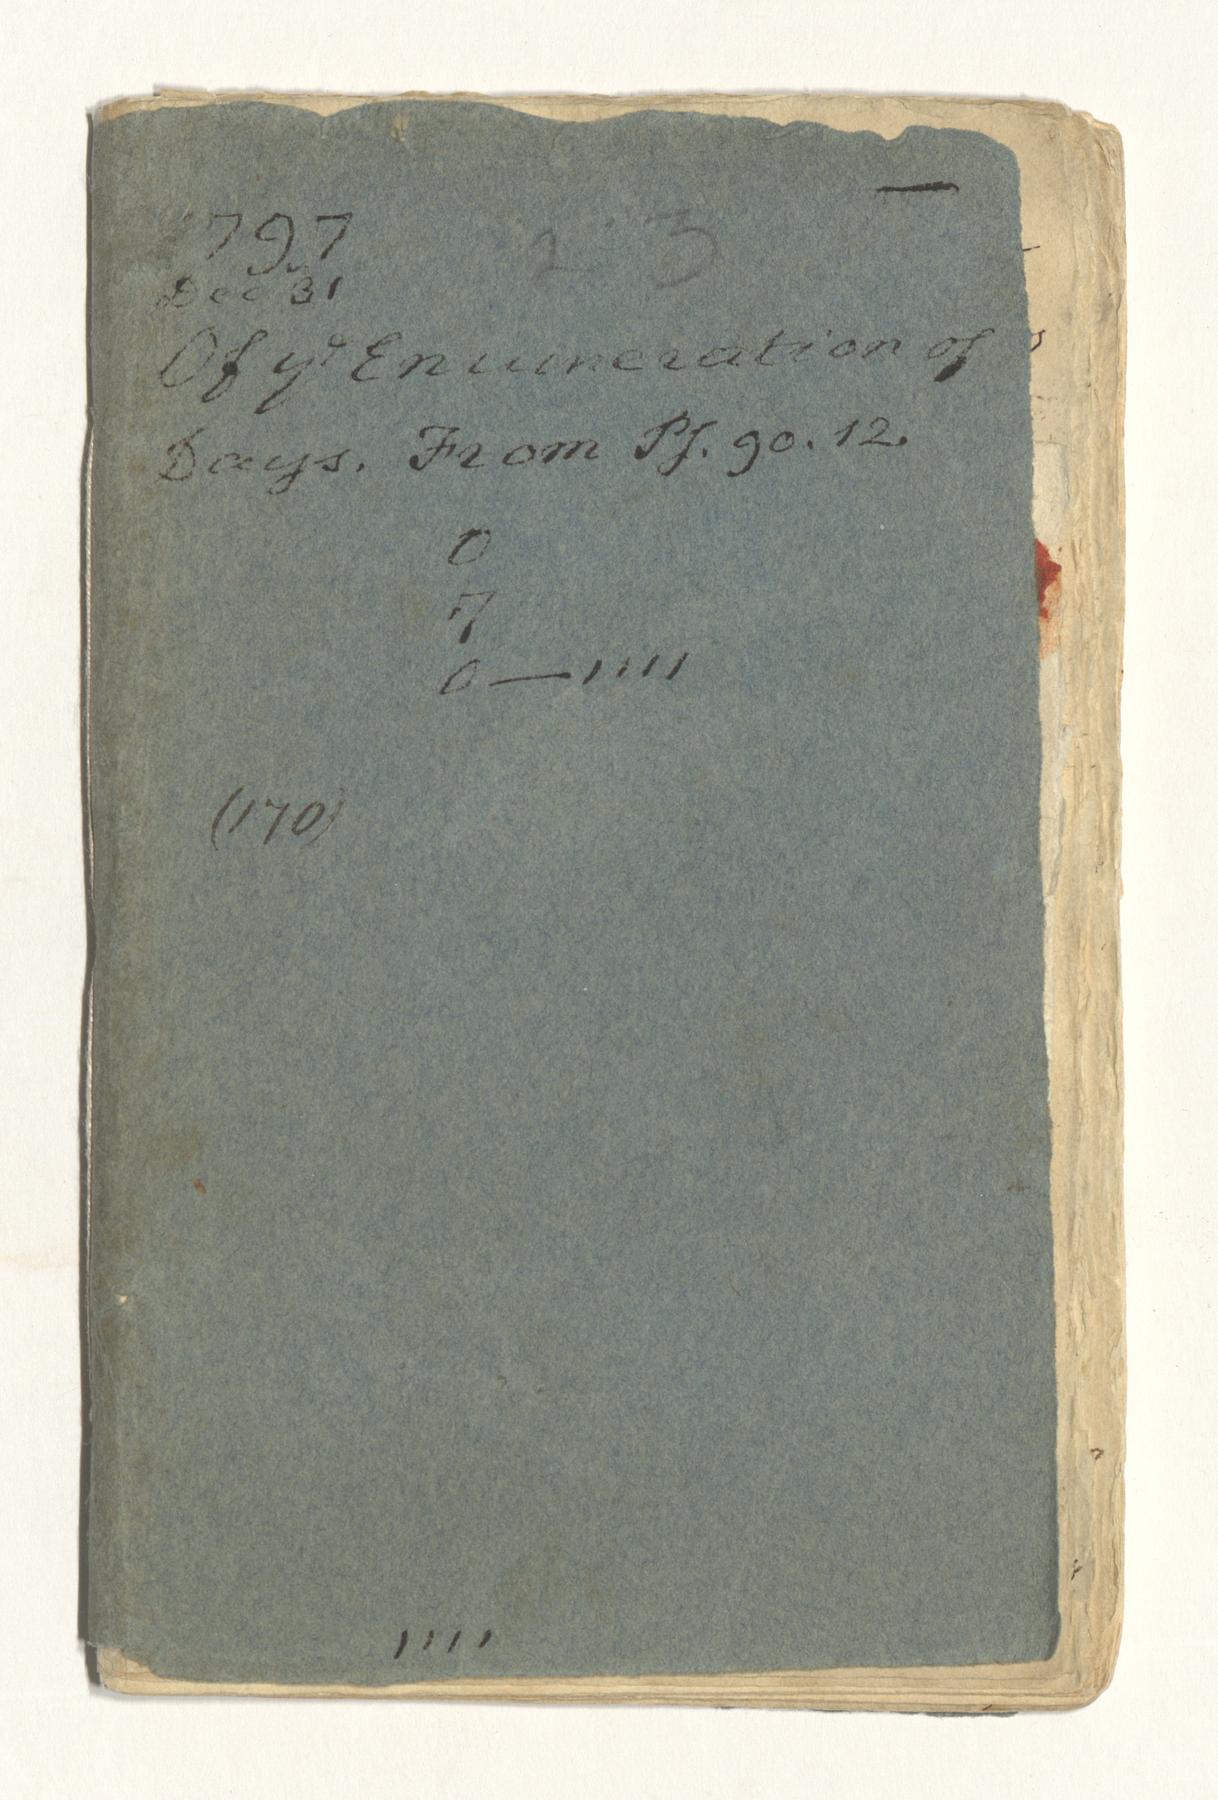 1797
Dec 31
Of ye Enumeration of
Days. From Ps. 90. 12.
0
7
0—1111
(170)
1111